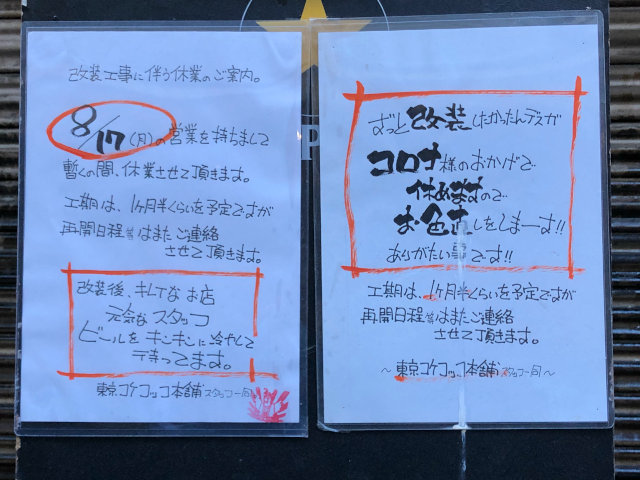 改装工事に伴う休業のご案内。
8/17(月)の営業を持ちまして
暫くの間、休業させて頂きます。
工期は、1ヶ月半くらいを予定ですが
再開日程等はまたご連絡
させて頂きます。
改装後、キレイなお店
元気なスタッフ
ビールをキンキンに冷やして
待ってます。
東京コケコッコ本舗スタッフ一同
ずっと改装したかったんデスが
コロナ様のおかげで
休めますので
お色直しをしまーす!!
ありがたい事です!!
工期は、1ヶ月半くらいを予定ですが
再開日程等はまたご連絡
させて頂きます。
～東京コケコッコ本舗スタッフ一同～